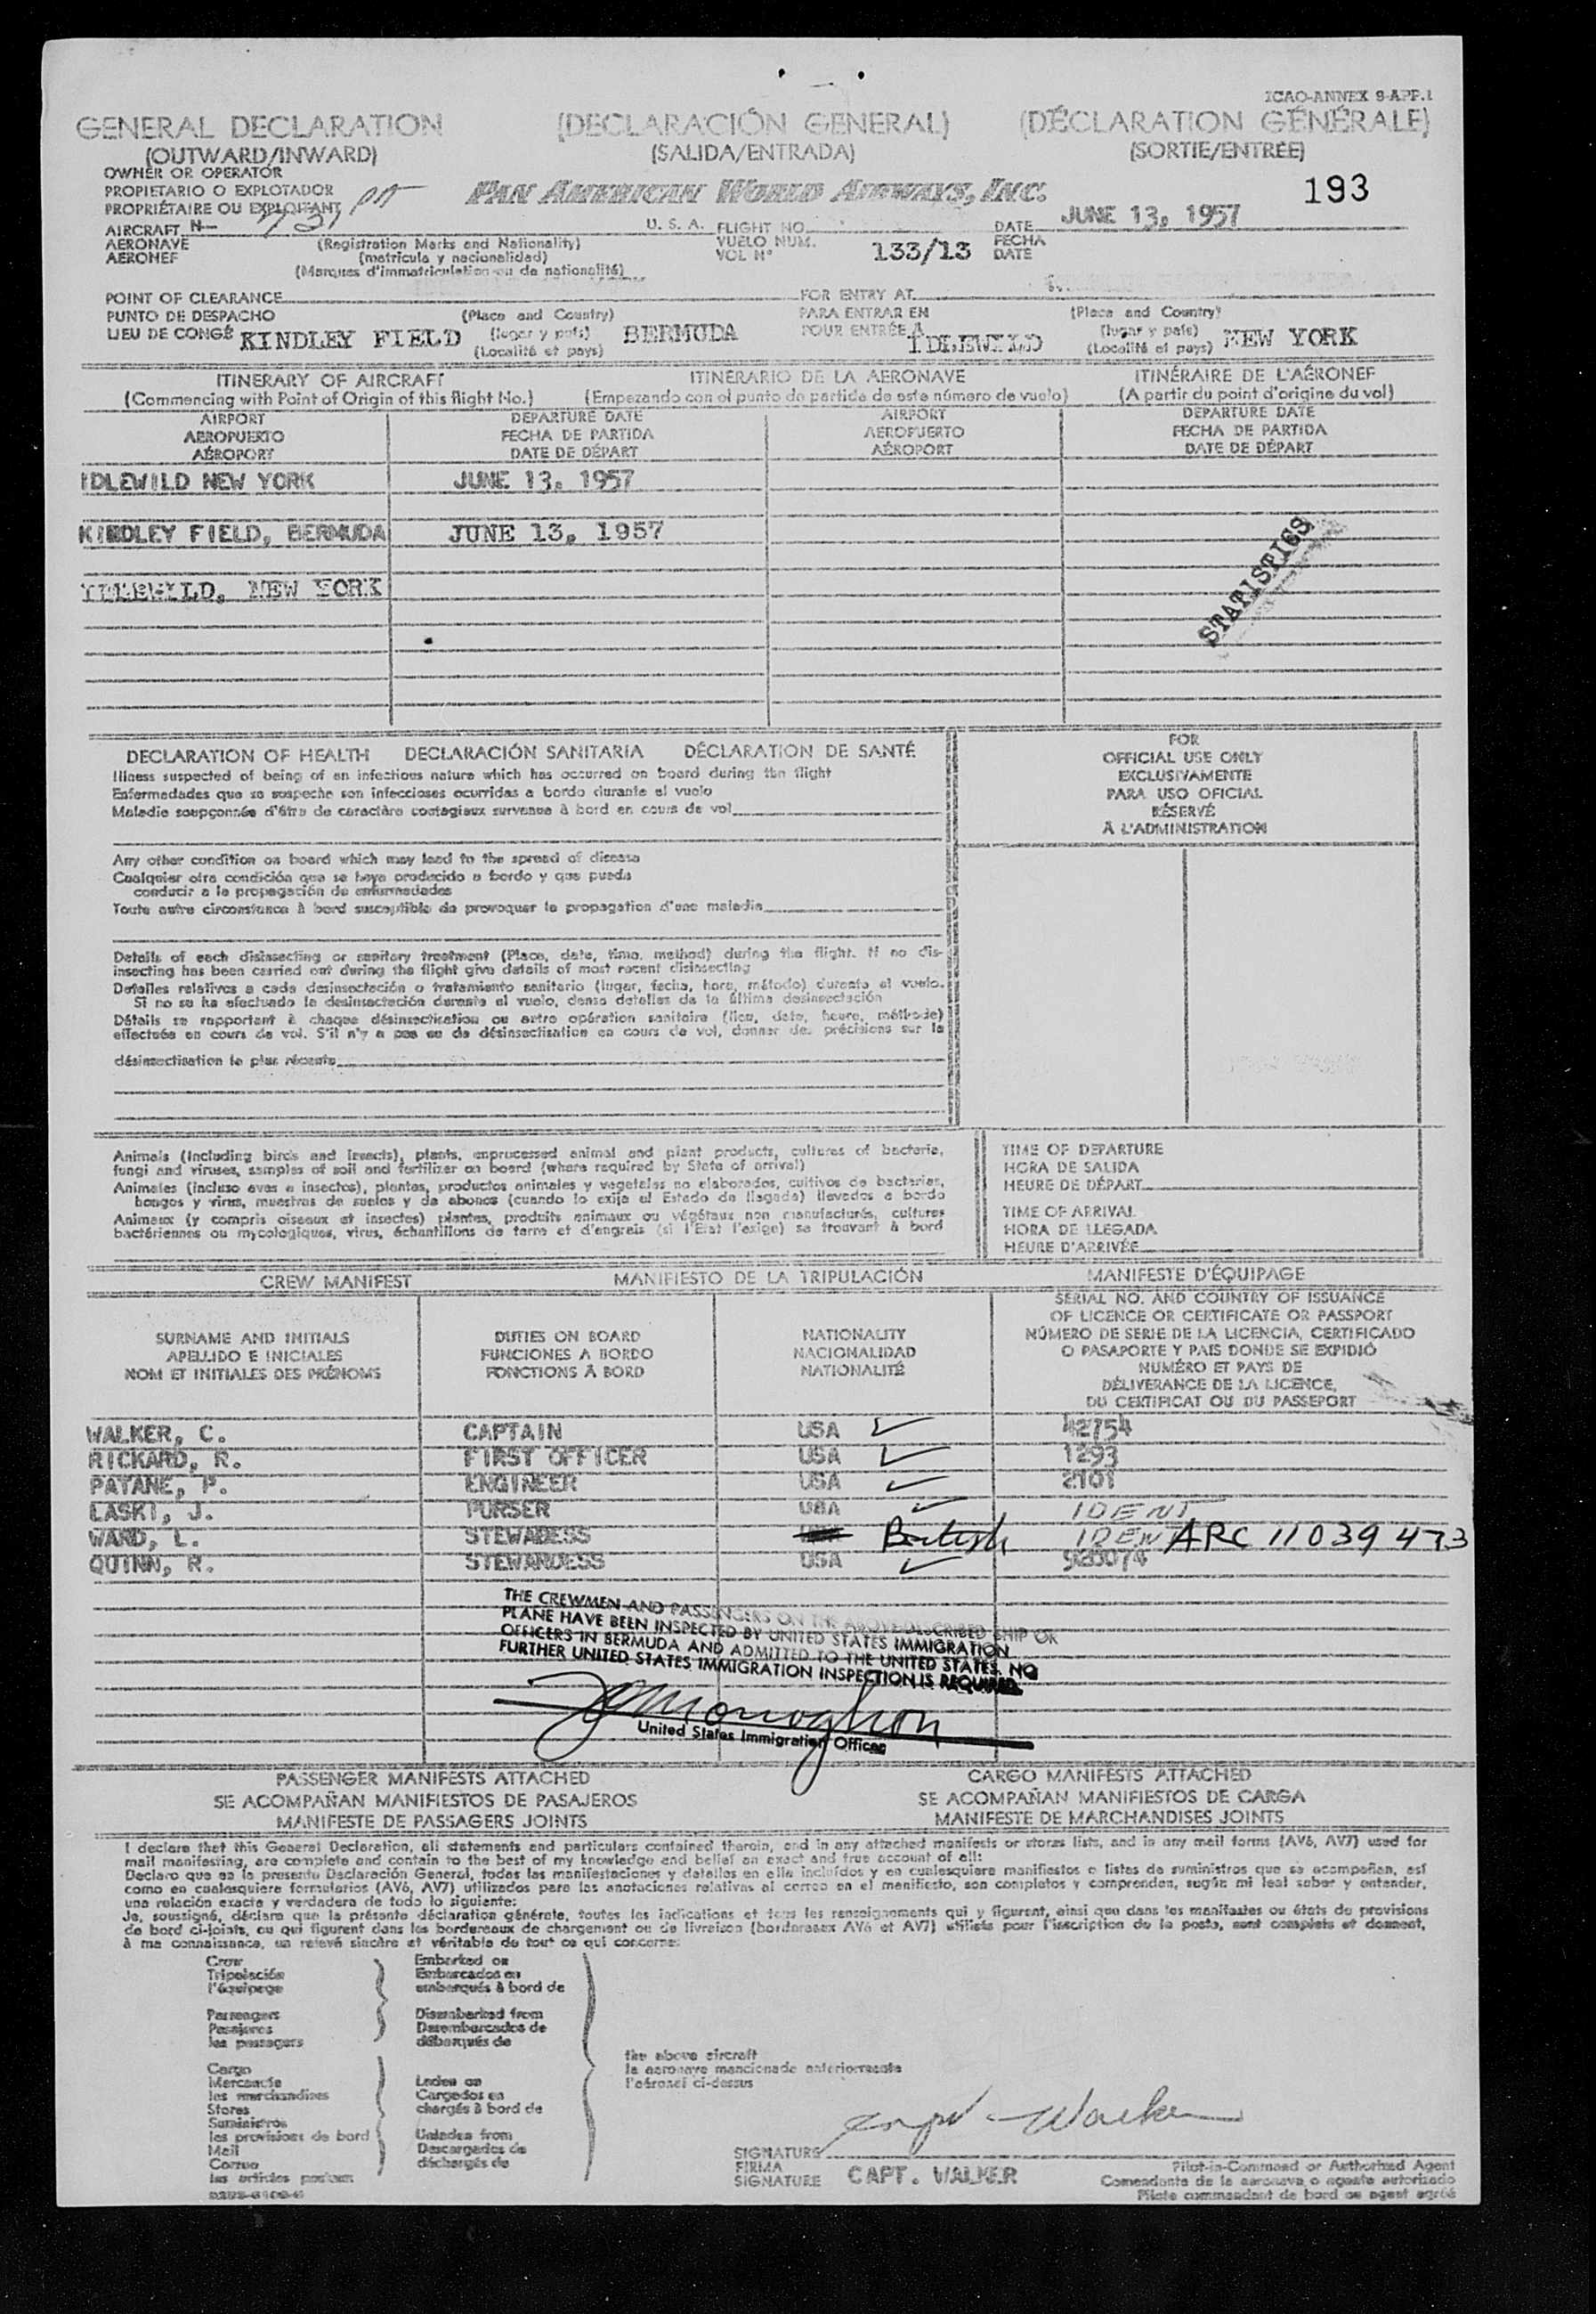 ICAO-ANNEX 9-APP.1
GENERAL DECLARATION (DECLARACIÓN GENERAL) (DÉCLARATION GÉNÉRALE)
(OUTWARD/INWARD) (SALIDA/ENTRADA) (SORTIE/ENTRÉE)
OWNER OR OPERATOR
PROPIETARIO O EXPLOTADOR
PROPRIÉTAIRE OU EXPLOITANT
PAN AMERICAN WORLD AIRWAYS, INC. 193
AIRCRAFT N- U. S. A. FLIGHT NO. DATE JUNE 13, 1957
AERONAVE (Registration Marks and Nationality) VUELO NUM. 133/13 FECHA
AERONEF (matrícula y nacionalidad) VOL Nº DATE
(Marques d'immatriculation ou de nationalité)
POINT OF CLEARANCE FOR ENTRY AT
PUNTO DE DESPACHO (Place and Country) PARA ENTRAR EN (Place and Country)
LIEU DE CONGÉ KINDLEY FIELD (lugar y país) BERMUDA POUR ENTRÉE A IDLEWILD (lugar y país) NEW YORK
(Localité et pays) (Localité et pays)
ITINERARY OF AIRCRAFT ITINERARIO DE LA AERONAVE ITINÉRAIRE DE L'AÉRONEF
(Commencing with Point of Origin of this flight No.) (Empezando con el punto de partida de este número de vuelo) (A partir du point d'origine du vol)
AIRPORT DEPARTURE DATE AIRPORT DEPARTURE DATE
AEROPUERTO FECHA DE PARTIDA AEROPUERTO FECHA DE PARTIDA
AÉROPORT DATE DE DÉPART AÉROPORT DATE DE DÉPART
IDLEWILD NEW YORK JUNE 13, 1957
KINDLEY FIELD, BERMUDA JUNE 13, 1957
IDLEWILD, NEW YORK
STATISTICS
DECLARATION OF HEALTH DECLARACIÓN SANITARIA DÉCLARATION DE SANTÉ
Illness suspected of being of an infectious nature which has occurred on board during the flight
Enfermedades que se sospeche son infecciosas ocurridas a bordo durante el vuelo
Maladie soupçonnée d'être de caractère contagieux survenue à bord en cours de vol
FOR
OFFICIAL USE ONLY
EXCLUSIVAMENTE
PARA USO OFICIAL
RÉSERVÉ
À L'ADMINISTRATION
Any other condition on board which may lead to the spread of disease
Cualquier otra condición que se haya producido a bordo y que pueda
conducir a la propagación de enfermedades
Toute autre circonstance à bord susceptible de provoquer la propagation d'une maladie
Details of each disinsecting or sanitary treatment (Place, date, time, method) during the flight. If no dis-
insecting has been carried out during the flight give details of most recent disinsecting
Detalles relativos a cada desinsectación o tratamiento sanitario (lugar, fecha, hora, método) durante el vuelo.
Si no se ha efectuado la desinsectación durante el vuelo, dense detalles de la última desinsectación
Détails se rapportant à chaque désinsectisation ou autre opération sanitaire (lieu, date, heure, méthode)
effectuée en cours de vol. S'il n'y a pas eu de désinsectisation en cours de vol, donner des précisions sur la
désinsectisation la plus récente
Animals (Including birds and insects), plants, unprocessed animal and plant products, cultures of bacteria,
fungi and viruses, samples of soil and fertilizer on board (where required by State of arrival)
Animales (incluso aves e insectos), plantas, productos animales y vegetales no elaborados, cultivos de bacterias,
hongos y virus, muestras de suelos y de abonos (cuando lo exija el Estado de llegada) llevados a bordo
Animaux (y compris oiseaux et insectes) plantes, produits animaux ou végétaux non manufacturés, cultures
bactériennes ou mycologiques, virus, échantillons de terre et d'engrais (si l'État l'exige) se trouvant à bord
TIME OF DEPARTURE
HORA DE SALIDA
HEURE DE DÉPART
TIME OF ARRIVAL
HORA DE LLEGADA
HEURE D'ARRIVÉE
CREW MANIFEST MANIFIESTO DE LA TRIPULACIÓN MANIFESTE D'ÉQUIPAGE
SURNAME AND INITIALS
APELLIDO E INICIALES
NOM ET INITIALES DES PRÉNOMS
DUTIES ON BOARD
FUNCIONES A BORDO
FONCTIONS À BORD
NATIONALITY
NACIONALIDAD
NATIONALITÉ
SERIAL NO. AND COUNTRY OF ISSUANCE
OF LICENCE OR CERTIFICATE OR PASSPORT
NÚMERO DE SERIE DE LA LICENCIA, CERTIFICADO
O PASAPORTE Y PAIS DONDE SE EXPIDIÓ
NUMÉRO ET PAYS DE
DÉLIVERANCE DE LA LICENCE,
DU CERTIFICAT OU DU PASSEPORT
WALKER, C. CAPTAIN USA 42754
RICKARD, R. FIRST OFFICER USA 1293
PATANE, P. ENGINEER USA 2101
LASKI, J. PURSER USA IDENT
WARD, L. STEWADESS British IDEN ARC 11 039 473
QUINN, R. STEWARDESS USA 928074
THE CREWMEN AND PASSENGERS ON THE ABOVE DESCRIBED SHIP OR
PLANE HAVE BEEN INSPECTED BY UNITED STATES IMMIGRATION
OFFICERS IN BERMUDA AND ADMITTED TO THE UNITED STATES. NO
FURTHER UNITED STATES IMMIGRATION INSPECTION IS REQUIRED.
United States Immigration Officer
PASSENGER MANIFESTS ATTACHED CARGO MANIFESTS ATTACHED
SE ACOMPAÑAN MANIFIESTOS DE PASAJEROS SE ACOMPAÑAN MANIFIESTOS DE CARGA
MANIFESTE DE PASSAGERS JOINTS MANIFESTE DE MARCHANDISES JOINTS
I declare that this General Declaration, all statements and particulars contained therein, and in any attached manifests or stores lists, and in any mail forms (AV6, AV7) used for
mail manifesting, are complete and contain to the best of my knowledge and belief an exact and true account of all:
Declaro que en la presente Declaración General, todas las manifestaciones y detalles en ella incluídos y en cualesquiera manifiestos o listas de suministros que se acompañan, así
como en cualesquiera formularios (AV6, AV7) utilizados para las anotaciones relativas al correo en el manifiesto, son completos y comprenden, según mi leal saber y entender,
una relación exacta y verdadera de todo lo siguiente:
Je, soussigné, déclare que la présente déclaration générale, toutes les indications et tous les renseignements qui y figurent, ainsi que dans les manifestes ou états de provisions
de bord ci-joints, ou qui figurent dans les bordereaux de chargement ou de livraison (bordereaux AV6 et AV7) utilisés pour l'inscription de la poste, sont complets et donnent,
à ma connaissance, un relevé sincère et véritable de tout ce qui concerne:
Crew Embarked on
Tripulación Embarcados en
l'équipage embarqués à bord de
Passengers Disembarked from
Pasajeros Desembarcados de
les passagers débarqués de
the above aircraft
la aeronave mencionada anteriormente
l'aéronef ci-dessus
Cargo
Mercancía Laden on
les marchandises Cargados en
Stores chargés à bord de
Suministros
les provisions de bord Unladen from
Mail Descargados de
Correo déchargés de
les articles postaux
Walker
SIGNATURE
FIRMA
SIGNATURE CAPT. WALKER
Pilot-in-Command or Authorized Agent
Comandante de la aeronave o agente autorizado
Pilote commandant de bord ou agent agréé